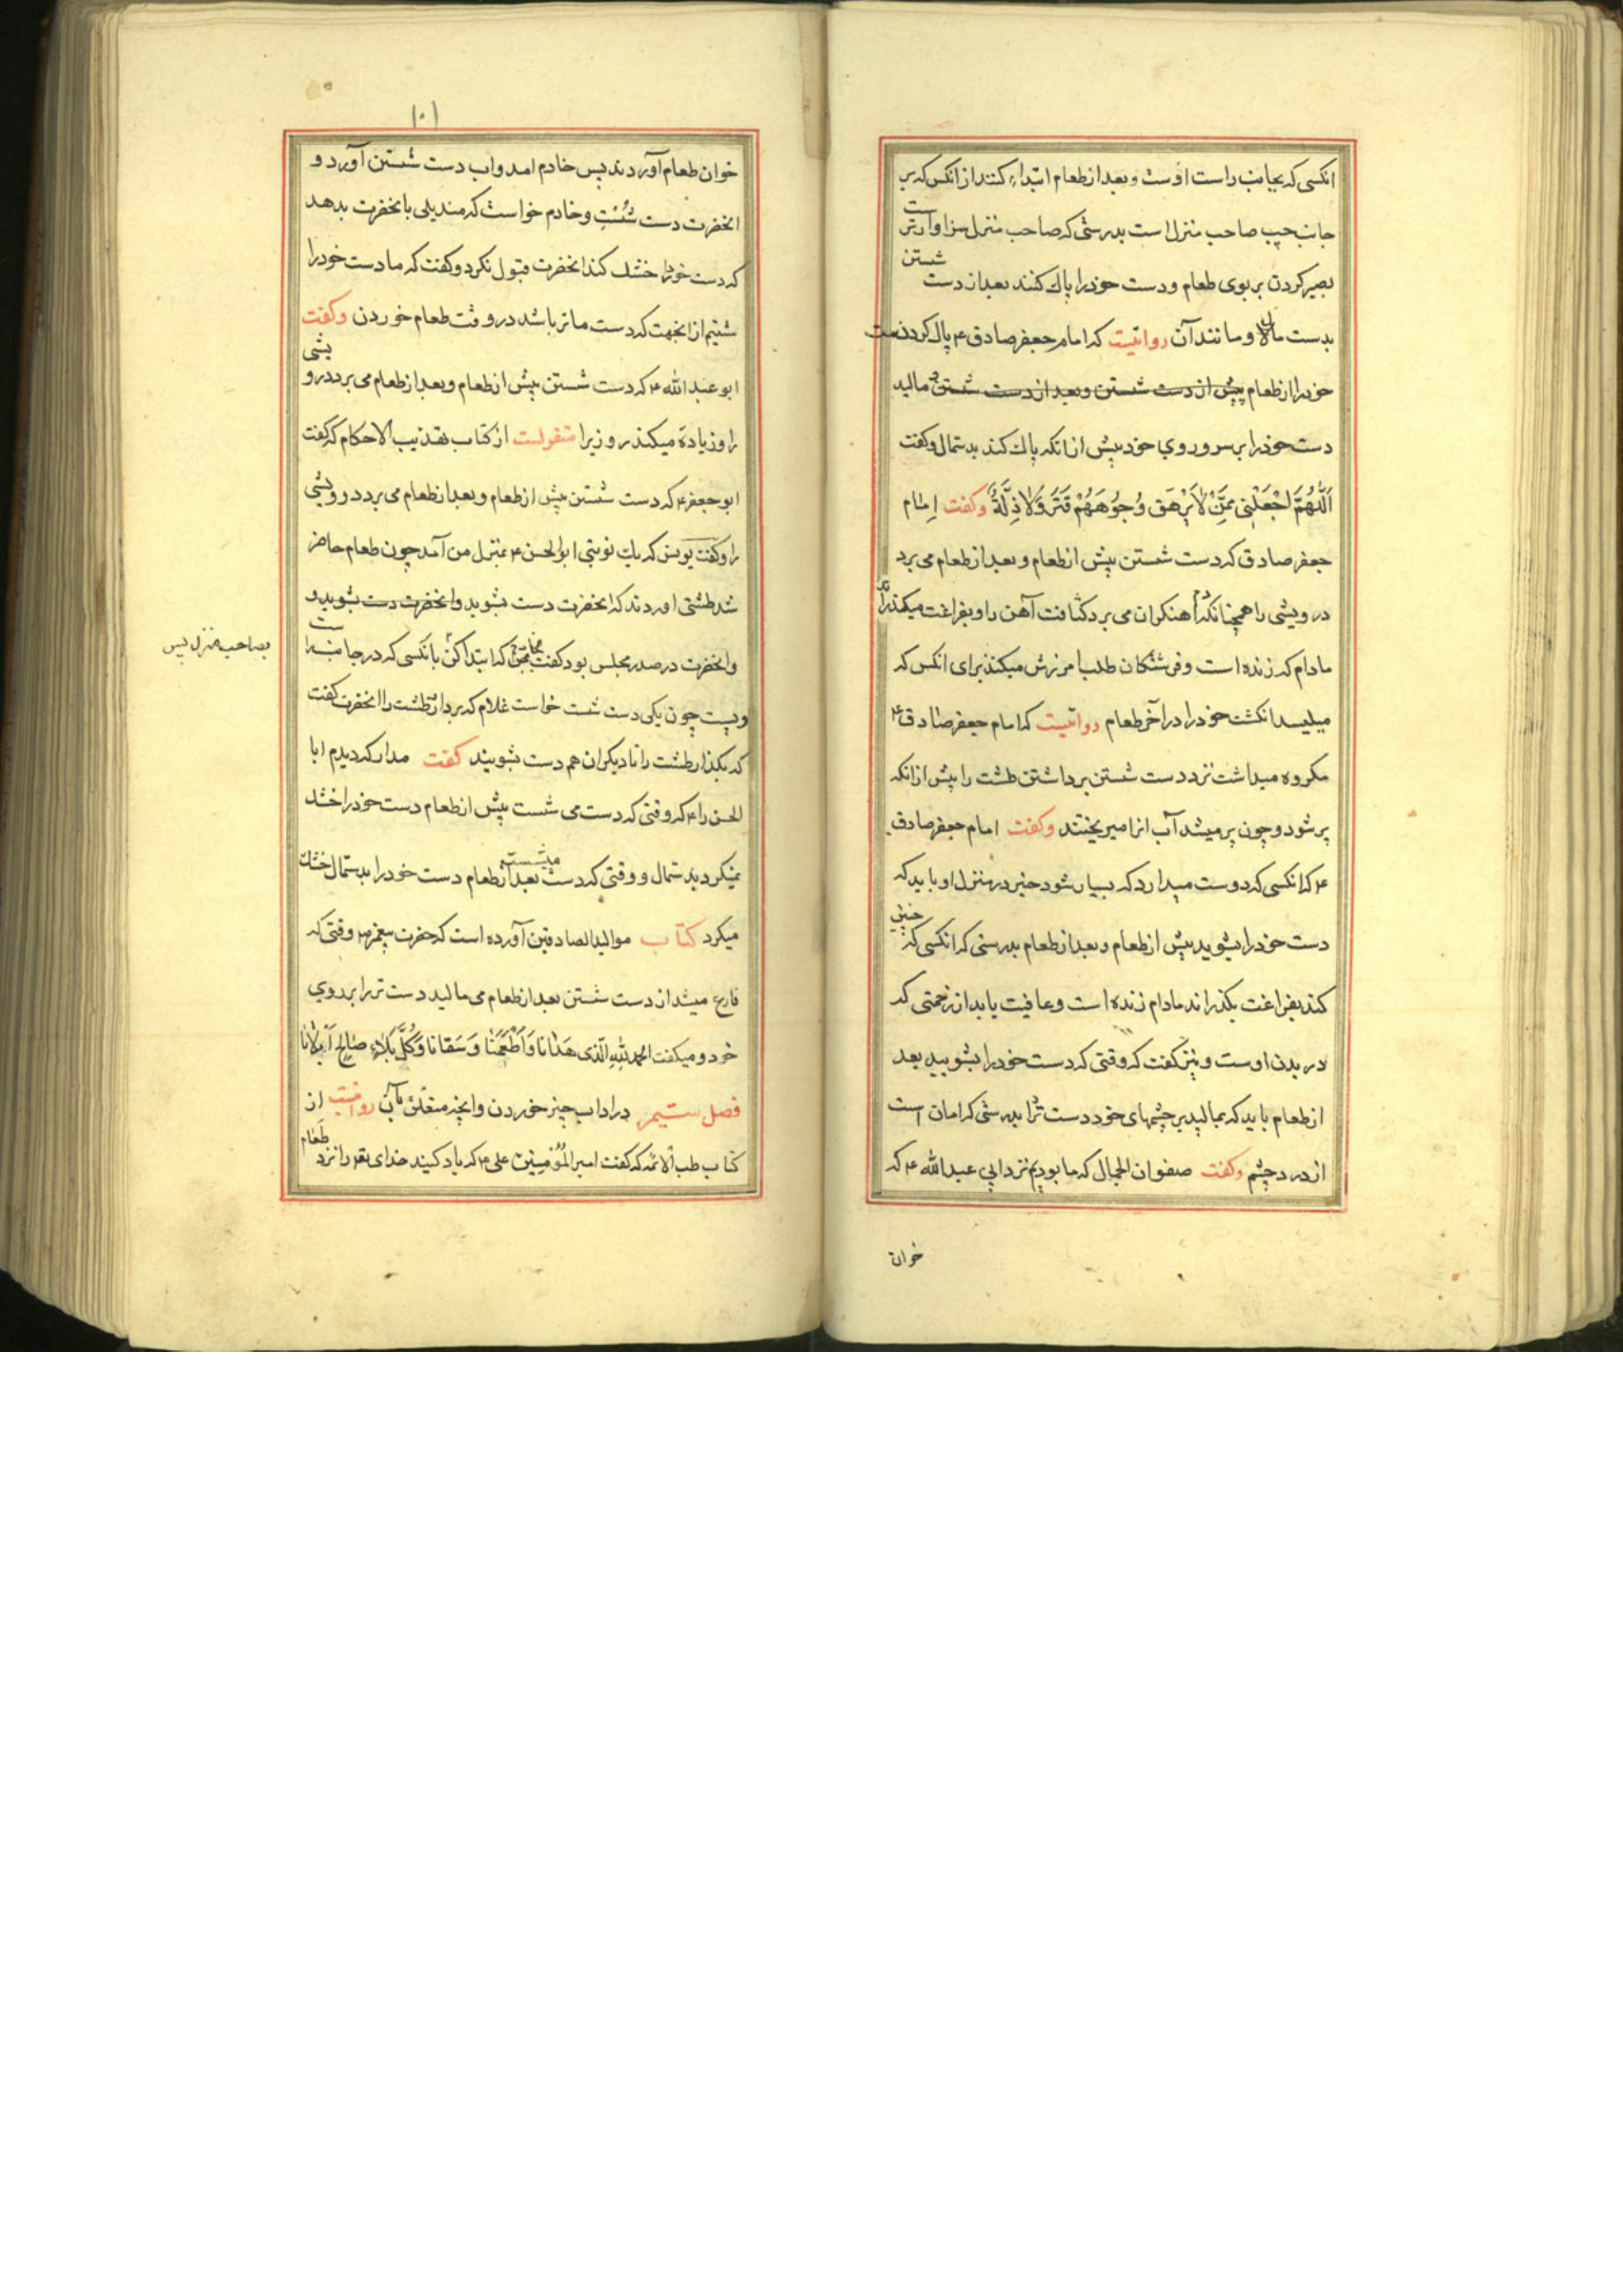 انکسی که بجانب راست اوست و بعد از طعام ابتداء کنند از انکس که بر
جانب چپ صاحب منزل است بدرستی که صاحب منزل سزاوارتر است
بصبر کردن بر بوی طعام و دست خودرا پاک کنند بعد از دست شستن
بدست مال و مانند آن روایتست که امام جعفر صادق ع پاک کردن دست
خودرا از طعام مالید
دست خودرا بر سر و روی خود پیش از انکه پاک کند بدستمال و کفت
اَللّٰهُمَّ اجْعَلْنِی مِمَّنْ لَا یَرْهَق وُجُوهَهُمْ قَتَرٌ وَلَا ذِلَّةٌ وکفت اِمام
جعفر صادق که دست شستن پیش از طعام و بعد از طعام می برد
درویشی را همچنانکه آهنکران می برد کثافت آهن را و بفراغت میکذراند
مادام که زنده است و فرشتکان طلب امرزش میکنند برای انکس که
میلیسد انکشت خودرا در آخر طعام روایتست که امام جعفر صادق ع
مکروه میداشت نزد دست شستن برداشتن طشت را پیش از انکه
پر شود و چون پر میشد آب انرا میریختند وکفت امام جعفر صادق
ع که انکسی که دوست میدارد که بسیار شود خیر در منزل او باید که
دست خودرا بشوید پیش از طعام و بعد از طعام بدرستی که انکسی که چنین
کند بفراغت بکذراند مادام زنده است و عافیت یابد از زحمتی که
در بدن اوست و نیز کفت که وقتی که دست خودرا بشویید بعد
از طعام باید که بمالید بر چشمهای خود دست تر را بدرستی که امان است
از درد چشم وکفت صفوان الجمال که ما بودیم نزد ابی عبدالله ع که
خوان
۱۰۱
خوان طعام آوردند پس خادم امد و اب دست شستن آورد و
انحضرت دست شُسْت و خادم خواست که مندیلی بانحضرت بدهد
که دست خودرا خشک کند انحضرت قبول نکرد و کفت که ما دست خودرا
شستیم از انجهت که دست ما تر باشد در وقت طعام خوردن وکفت
ابو عبدالله ع که دست شستن پیش از طعام و بعد از طعام می برد درویشی
را و زیاده میکند روزیرا منقولست از کتاب تهذیب الاحکام که کفت
ابو جعفر ع که دست شستن پیش از طعام و بعد از طعام می برد درویشی
را و کفت یونس که یک نوبتی ابو الحسن ع بمنزل من آمد چون طعام حاضر
شد طشتی اوردند که انحضرت دست بشوید
وانحضرت در صدر مجلس بود کفت که ابتدا کن بانکسی که در جانب راست
بصاحب منزل پس
وبیست چون یکی دست شست خواست غلام که بردارد طشت را انحضرت کفت
که بکذار طشت را تا دیکران هم دست بشویند کفت مدار که دیدم ابا
الحسن را ع که وقتی که دست می شست پیش از طعام دست خودرا خشک
نمیکرد بدستمال و وقتی که دست میشست بعد از طعام دست خودرا بدستمال خشک
میکرد کتاب موالید الصادقین آورده است که حضرت پیغمبر ص وقتی که
فارغ میشد از دست شستن بعد از طعام می مالید دست تر را بر روی
خود و میکفت الحمد للهِ الّذی هَدَانَا وَاَطْعَمَنَا وَسَقَانَا وَکُلَّ بَلَاءٍ صَالِحٍ اَبْلَانَا
فصل ستیم در اداب چیز خوردن و انچه متعلق بآن روایتست از
کتاب طب الائمه که کفت امیر المُؤمِنین علی ع که یاد کنید خدای تع را نزد طَعام